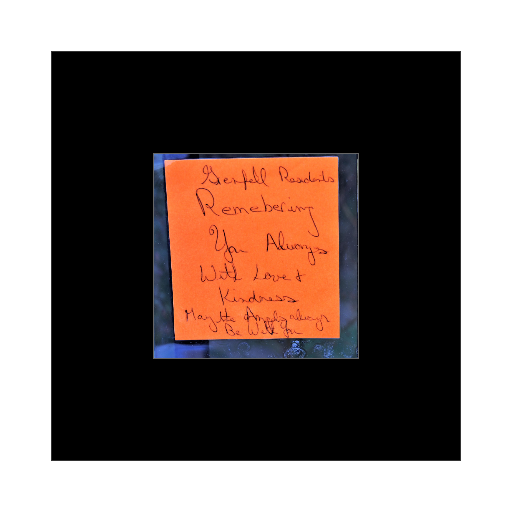 Grenfell Residents
Remebering
You Always
With Love &
Kindness
May the Angels always
Be With you